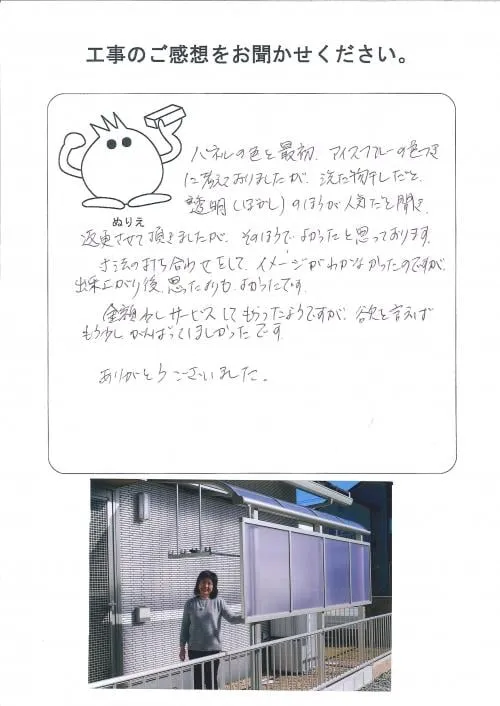 工事のご感想をお聞かせください。
ぬりえ
パネルの色を最初、アイスブルーの色つき
に考えておりましたが、洗た物干しだと、
透明(ぼかし)のほうが人気だと聞き、
変更させて頂きましたが、そのほうでよかったと思っております。
寸法の打ち合わせをして、イメージがわかなかったのですが、
出来上がり後、思ったよりも、よかったです。
金額少しサービスしてもらったようですが、欲を言えば
もう少しがんばってほしかったです。
ありがとうございました。